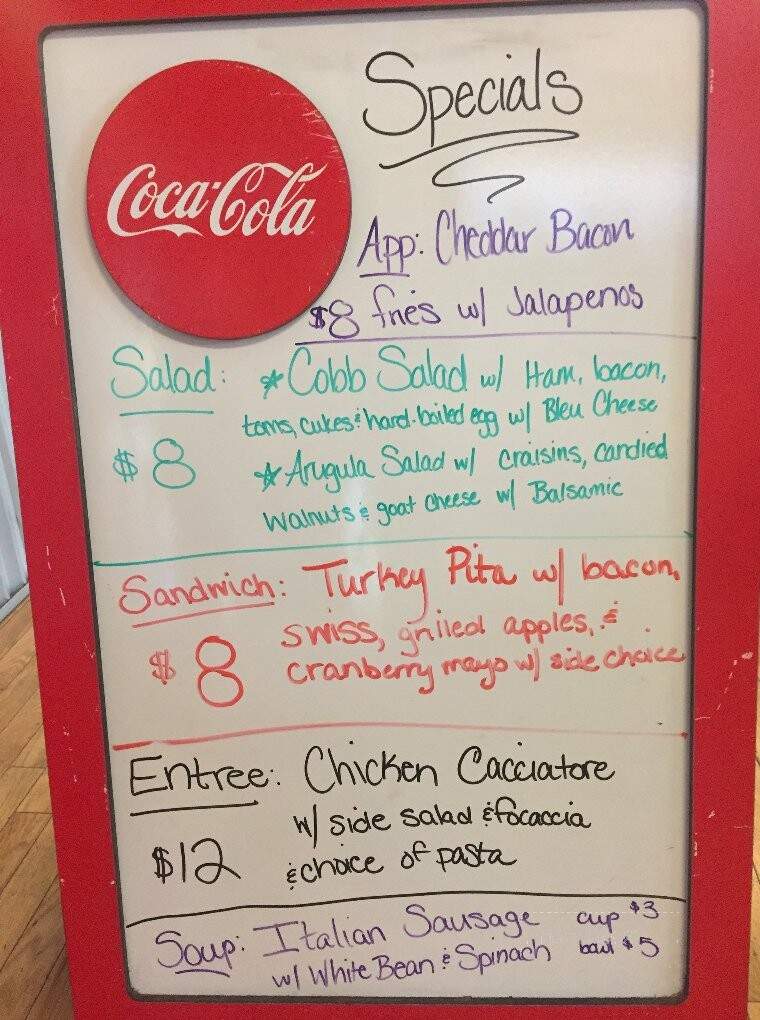 Specials
Coca-Cola
App: Cheddar Bacon
$8 fries w/ Jalapenos
Salad: * Cobb Salad w/ Ham, bacon,
toms, cukes & hard-boiled egg w/ Bleu Cheese
$8
* Arugula Salad w/ craisins, candied
Walnuts & goat cheese w/ Balsamic
Sandwich: Turkey Pita w/ bacon,
swiss, grilled apples, &
$8 cranberry mayo w/ side choice
Entree: Chicken Cacciatore
w/ side salad & focaccia
$12 & choice of pasta
Soup: Italian Sausage cup $3
w/ White Bean & Spinach bowl $5